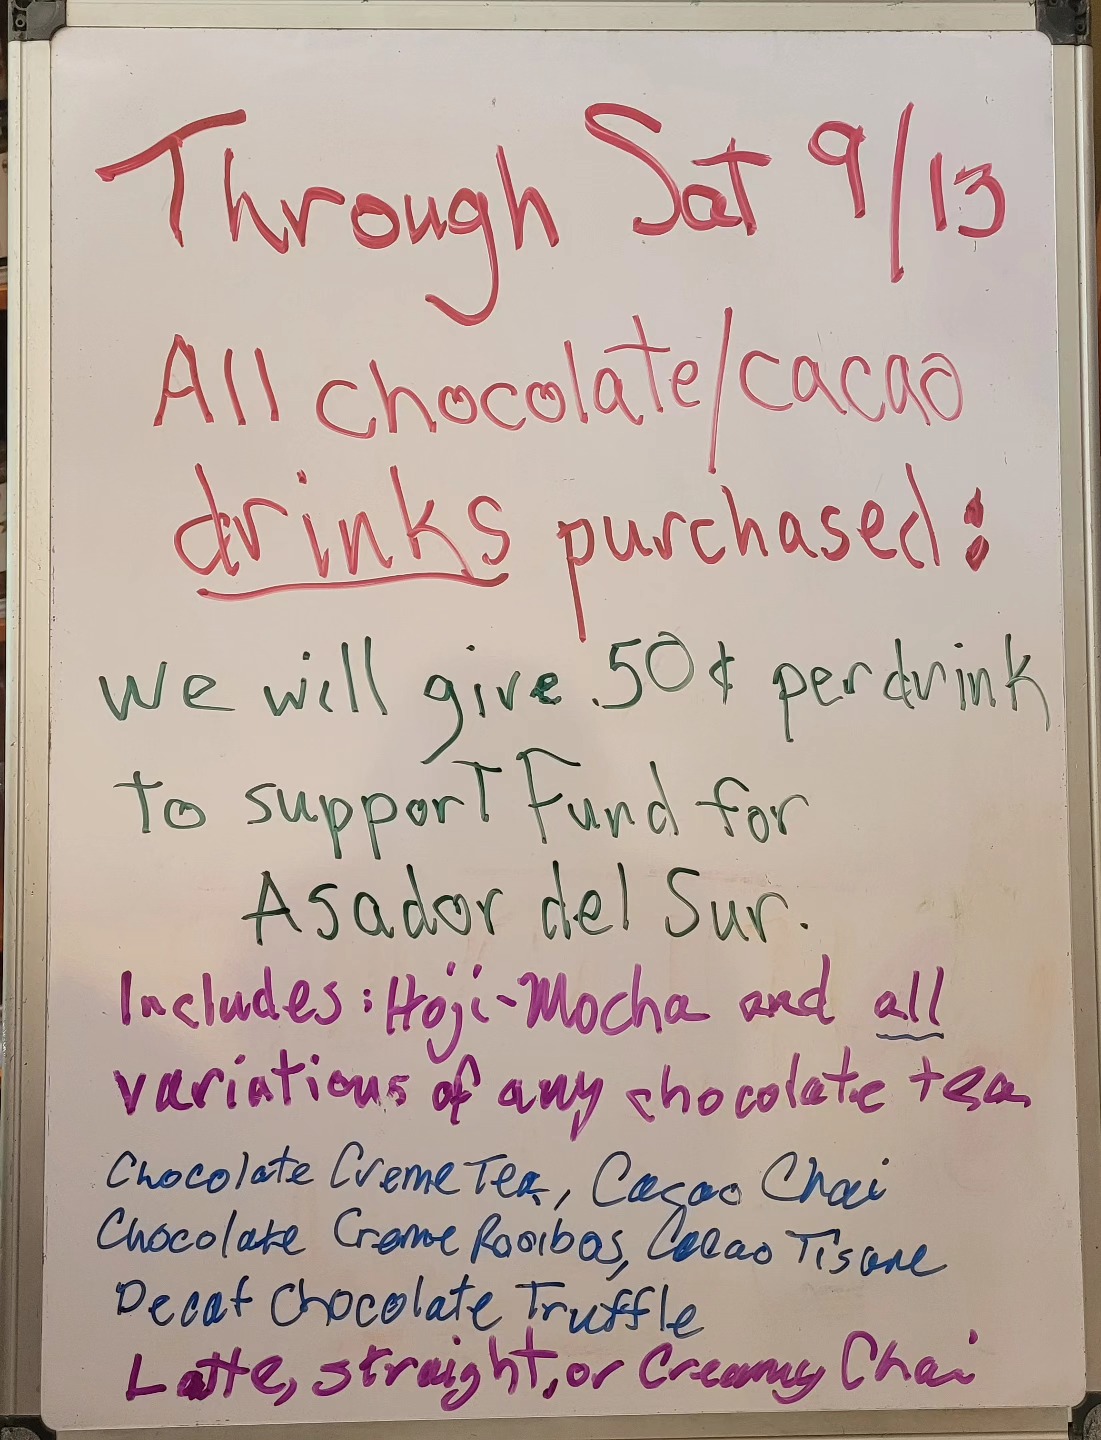 Through Sat 9/13
All chocolate/cacao
drinks purchased:
we will give .50¢ per drink
to support Fund for
Asador del Sur.
Includes: Hoji-Mocha and all
variations of any chocolate tea
Chocolate Creme Tea, Cacao Chai
Chocolate Creme Rooibos, Cacao Tisane
Decaf Chocolate Truffle
Latte, straight, or Creamy Chai